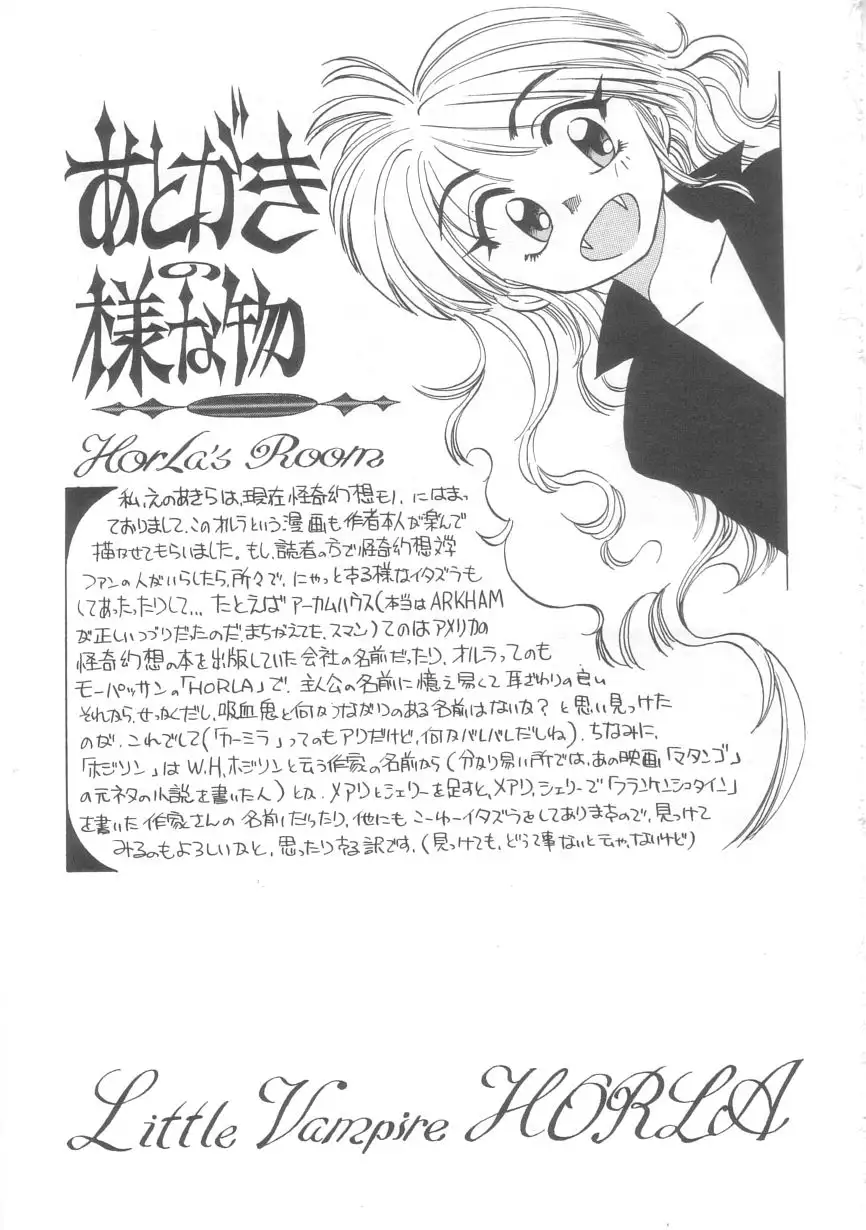 あとがき
の
様な物
HorLa's Room
私、えのあきらは、現在怪奇幻想モノにはまっ
ておりまして、このオルラという漫画も作者本人が楽んで
描かせてもらいました。もし、読者の方で怪奇幻想文学
ファンの人がいらしたら、所々で、にやっとする様なイタズラも
してあったりして… たとえばアーカムハウス(本当はARKHAM
が正しいつづりだったのだ、まちがえてた、スマン)てのはアメリカの
怪奇幻想の本を出版していた会社の名前だったり、オルラってのも
モーパッサンの「HORLA」で、主人公の名前に憶え易くて耳ざわりの良い
それから、せっかくだし、吸血鬼と何かつながりのある名前はないか?と思い見つけた
のが、これでして(「カーミラ」ってのもアリだけど、何かバレバレだしね)。ちなみに、
「ホジソン」はW.H.ホジソンと云う作家の名前から(分かり易い所では、あの映画「マタンゴ」
の元ネタの小説を書いた人)とか、メアリとシェリーを足すと、メアリ、シェリーで「フランケンシュタイン」
を書いた作家さんの名前だったり、他にもこーゆーイタズラをしてありますので、見つけて
みるのもよろしいかと、思ったりする訳です。(見っけても、どうって事ないと云や、ないけど)
Little Vampire HORLA